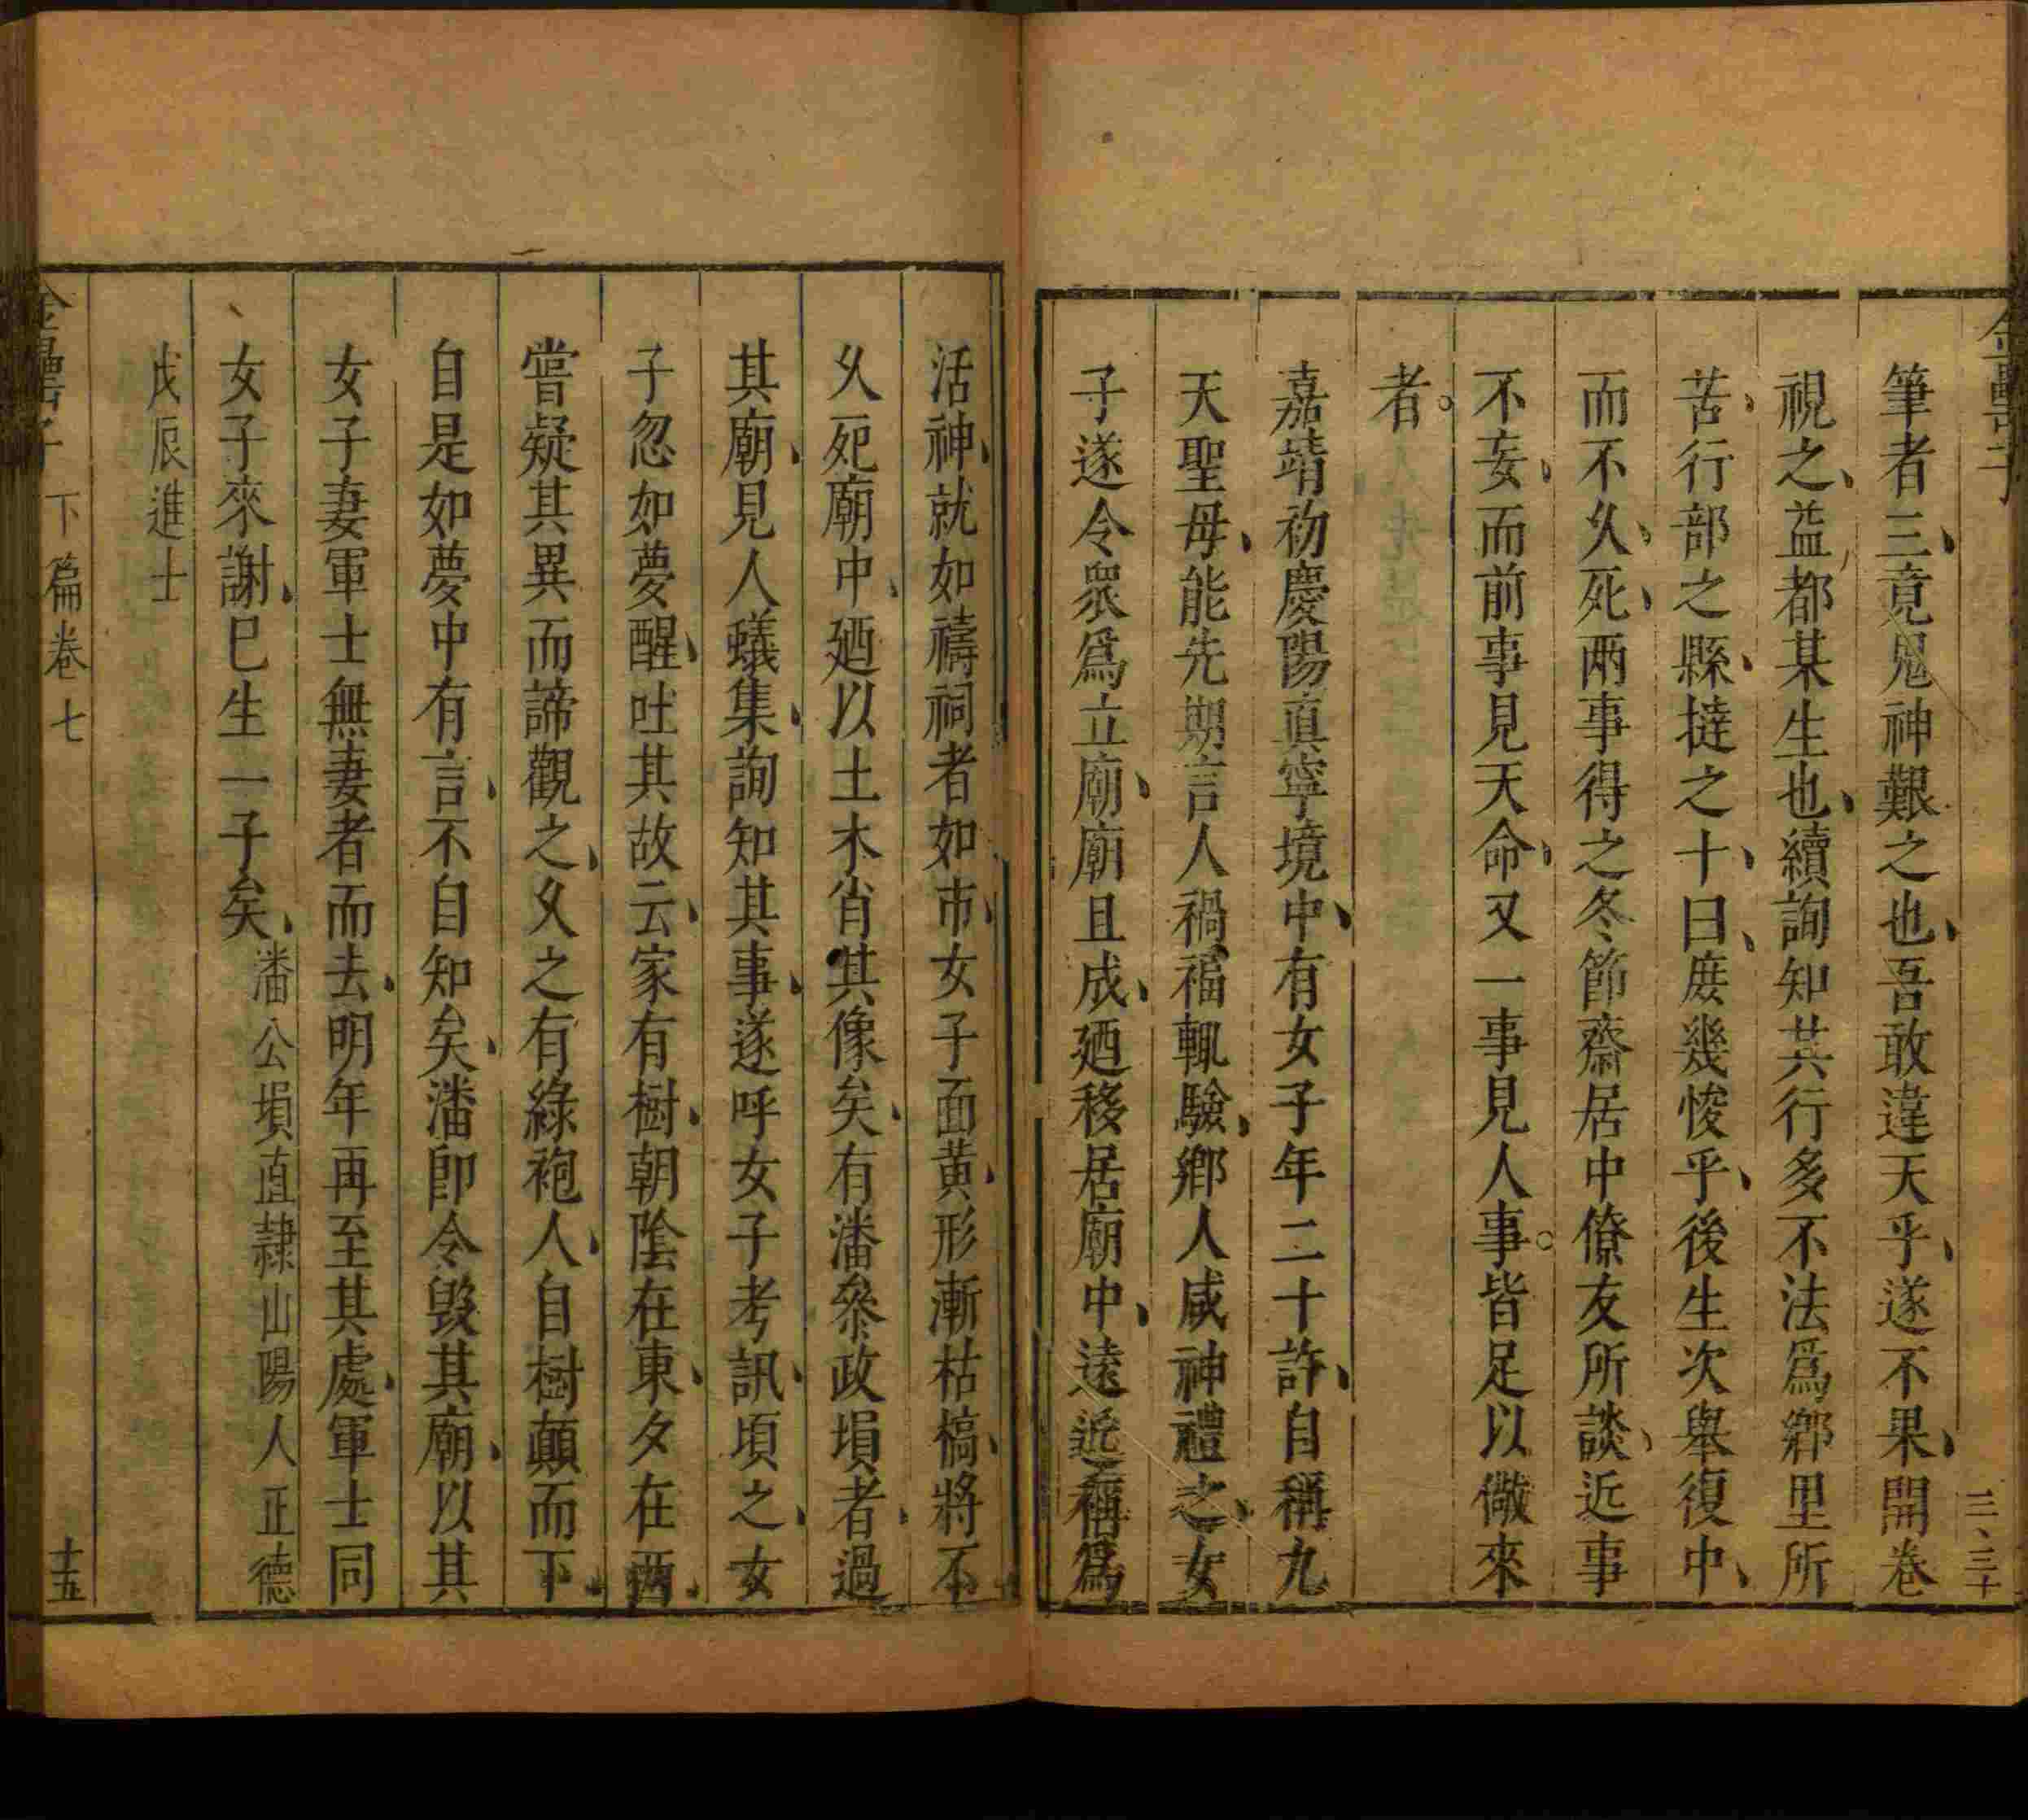 筆者三竟鬼神艱之也吾敢違天乎遂不果開卷
視之益都某生也續詢知其行多不法爲鄉里所
苦行部之縣撻之十曰庻幾悛乎後生次舉復中
而不乆死两事得之冬節齋居中僚友所談近事
不妄而前事見天命又一事見人事皆足以儆來
者
嘉靖初慶陽真寧境中有女子年二十許自稱九
天聖母能先期言人禍福輒驗鄉人咸神禮之女
子遂令衆爲立廟廟且成廼移居廟中遠近稱爲
活神就如禱祠者如市女子面黄形漸枯槁將不
乆死廟中廼以土木肖其像矣有潘叅政塤者過
其廟見人蟻集詢知其事遂呼女子考訊頃之女
子忽如夢醒吐其故云家有樹朝陰在東夕在西
嘗疑其異而諦觀之乆之有綠袍人自樹顛而下
自是如夢中有言不自知矣潘卽令毁其廟以其
女子妻軍士無妻者而去明年再至其處軍士同
女子來謝巳生一子矣潘公塤直隷山陽人正德
戊辰進士
金罍子 下篇卷七 十五